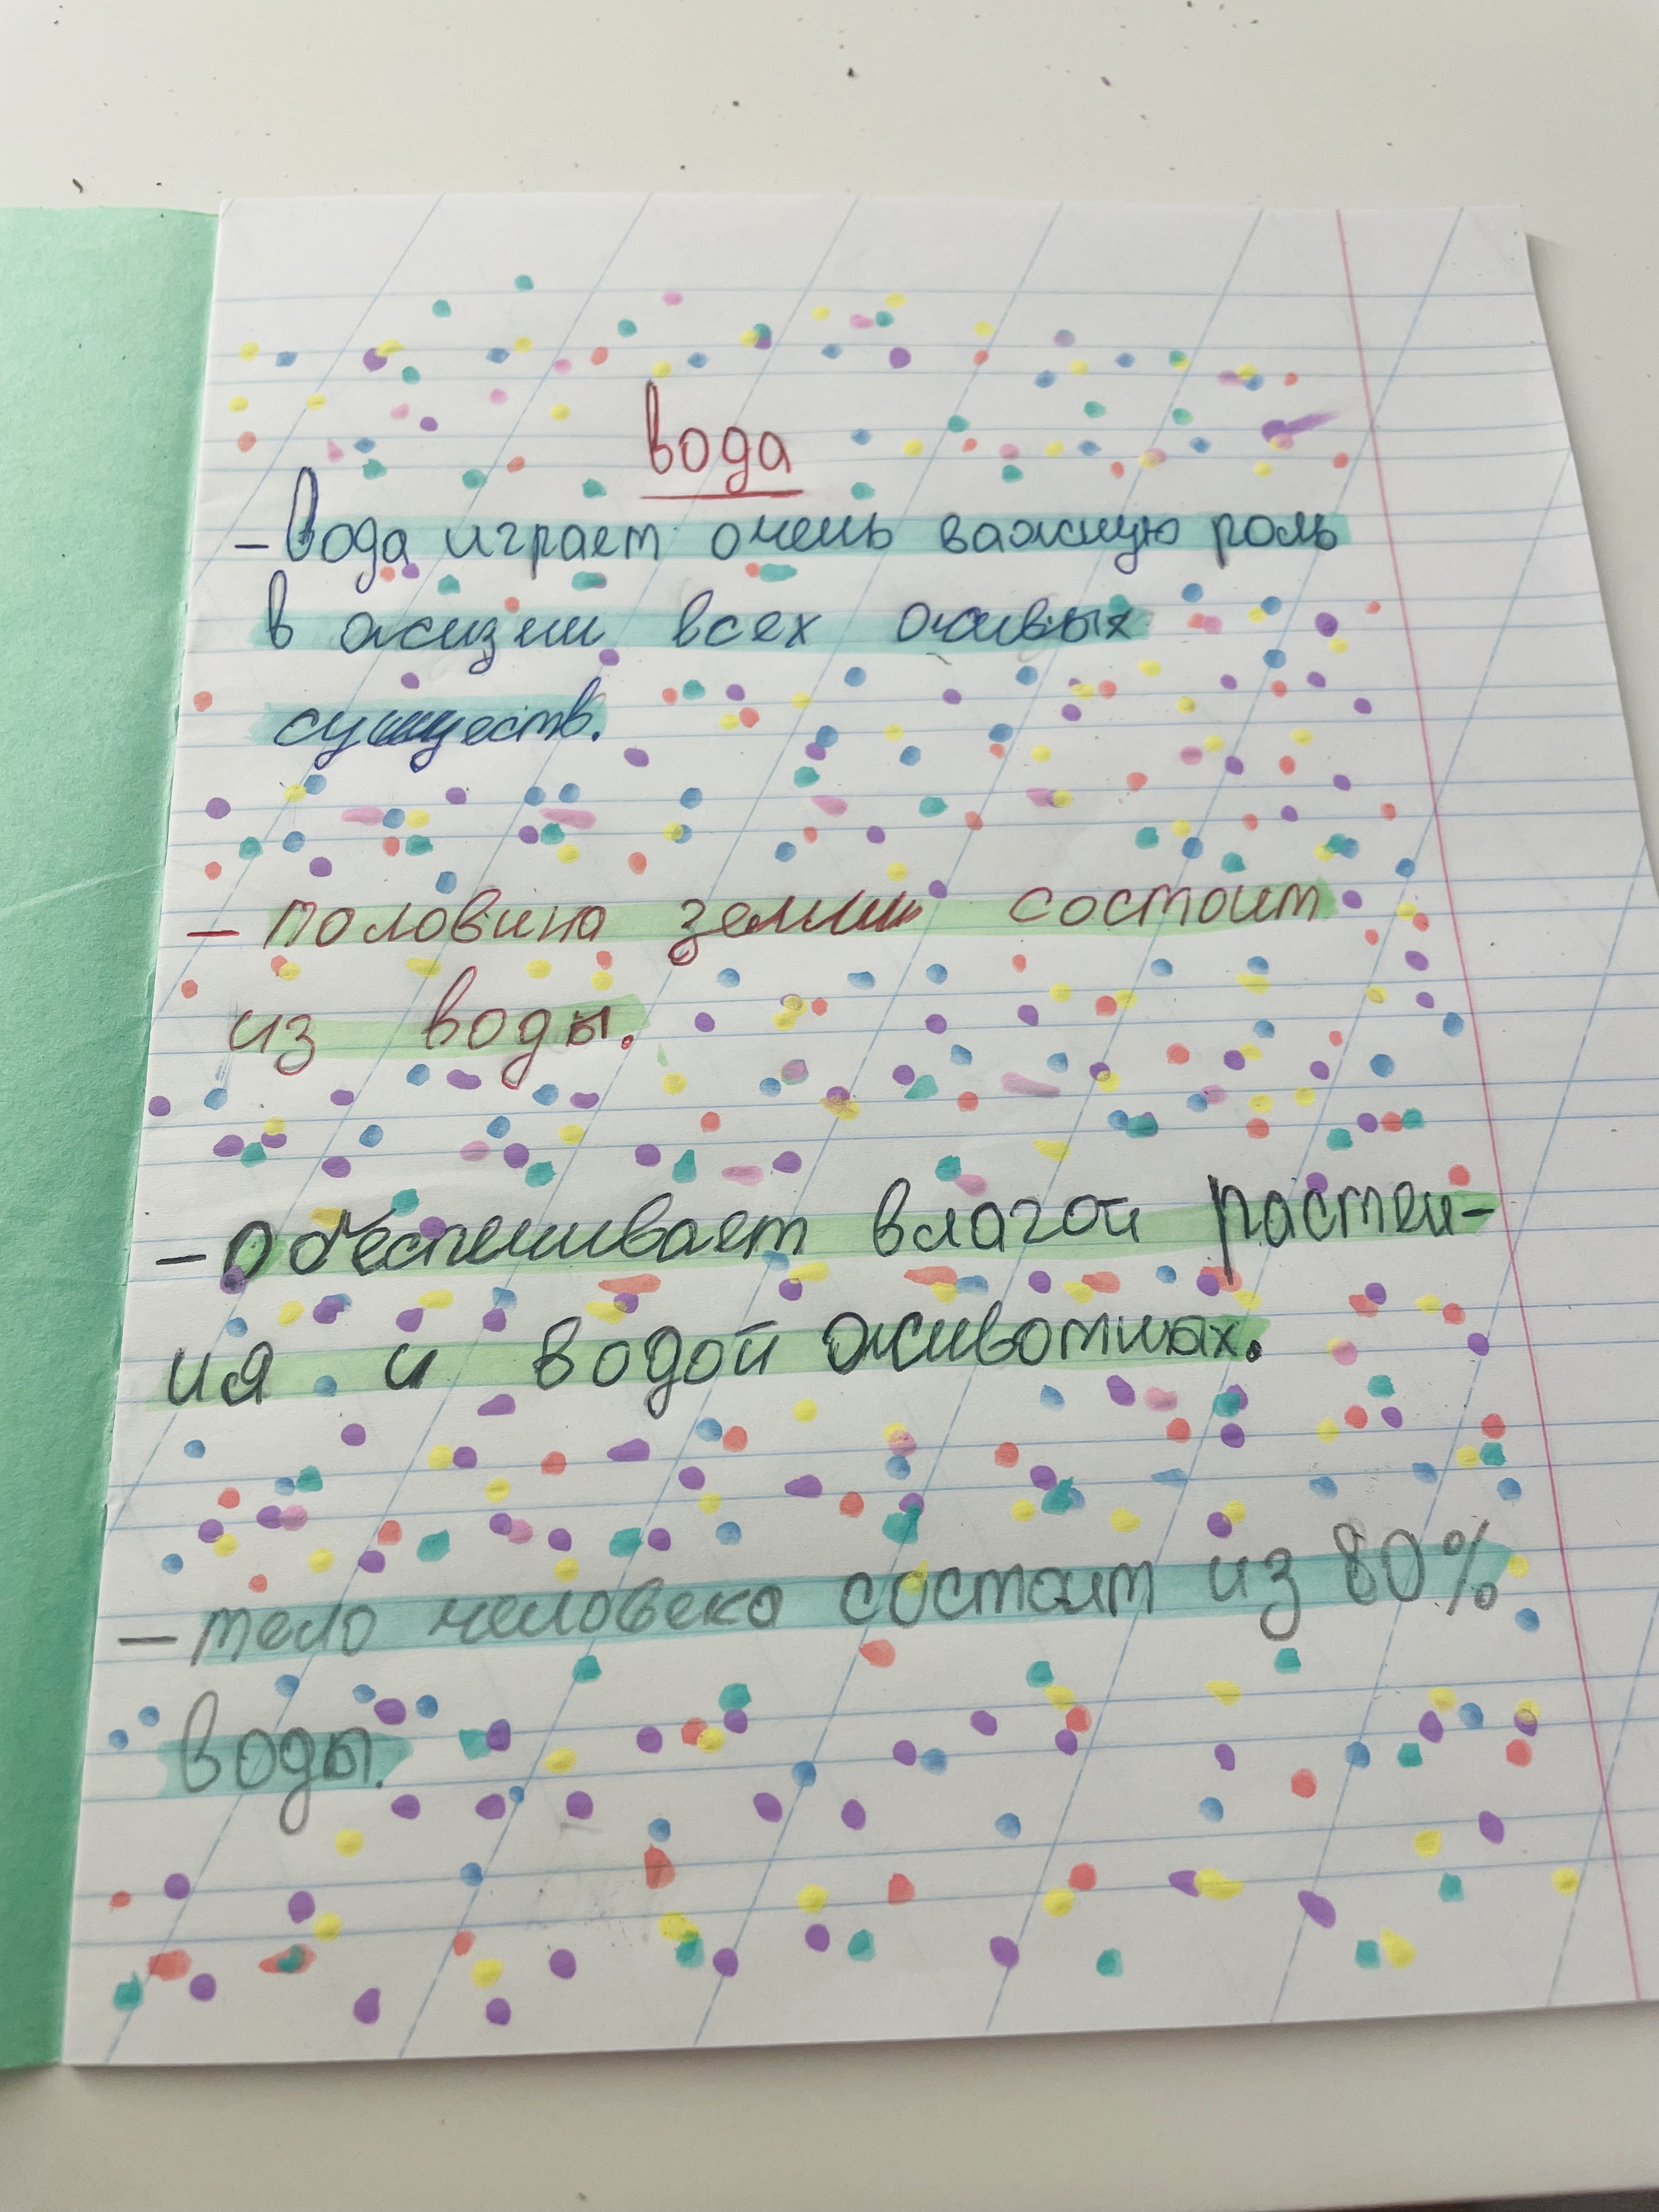 вода
- Вода играет очень важную роль
в жизни всех живых
существ.
- половина земли состоит
из воды.
- Обеспечивает влагой растен-
ия и водой животных.
- тело человека состоит из 80%
воды.